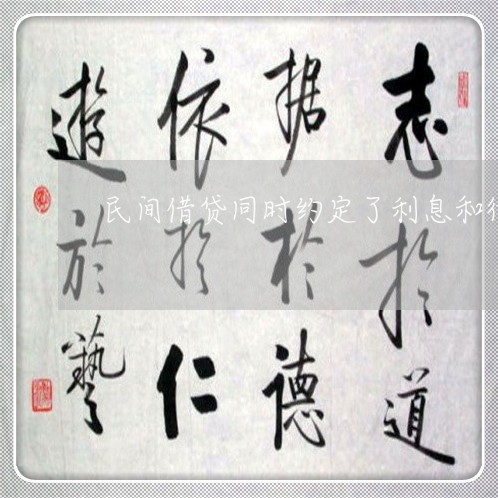 志於道
据於德
依於仁
遊於藝
民间借贷同时约定了利息和